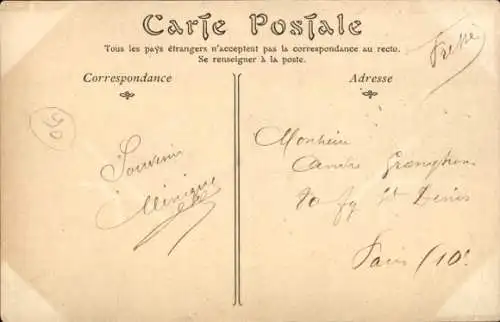 Carte Postale
Tous les pays étrangers n'acceptent pas la correspondance au recto.
Se renseigner à la poste.
Correspondance
Adresse
Souvenir
Monsieur
André
fg St Denis
Paris (10e